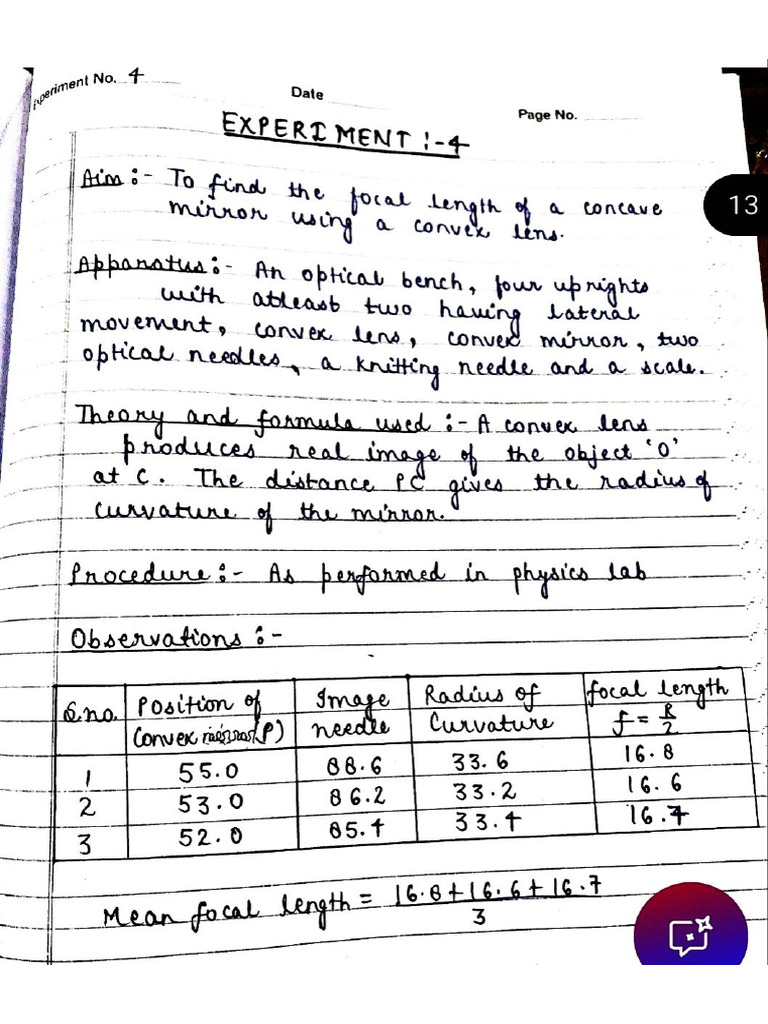 Experiment No. 4
Date
Page No.
EXPERIMENT :- 4
13
Aim :- To find the focal length of a concave
mirror using a convex lens.
Apparatus :- An optical bench, four uprights
with atleast two having lateral
movement, convex lens, convex mirror, two
optical needles, a knitting needle and a scale.
Theory and formula used :- A convex lens
produces real image of the object 'O'
at C. The distance PC gives the radius of
curvature of the mirror.
Procedure :- As performed in physics lab
Observations :-
S.no. Position of Image Radius of focal length
Convex mirror (P) needle Curvature f = R/2
1 55.0 88.6 33.6 16.8
2 53.0 86.2 33.2 16.6
3 52.0 85.4 33.4 16.7
Mean focal length = 16.8 + 16.6 + 16.7
3